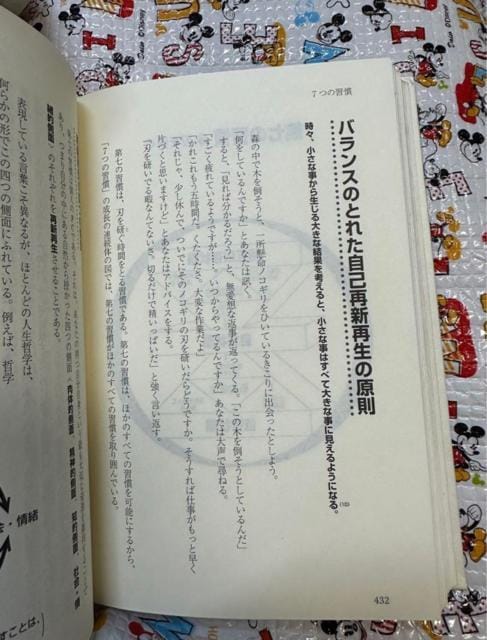 7つの習慣
バランスのとれた自己再新再生の原則
時々、小さな事から生じる大きな結果を考えると、小さな事はすべて大きな事に見えるようになる。
森の中で木を倒そうと、一所懸命ノコギリをひいているきこりに出会ったとしよう。
「何をしているんですか」とあなたは訊く。
すると、「見れば分かるだろう」と、無愛想な返事が返ってくる。「この木を倒そうとしているんだ」
「すごく疲れているようですが……。いつからやってるんですか」あなたは大声で尋ねる。
「かれこれもう五時間だ。くたくたさ。大変な作業だよ」
「それじゃ、少し休んで、ついでにそのノコギリの刃を研いだらどうですか。そうすれば仕事がもっと早く
片づくと思いますけど」とあなたはアドバイスをする。
「刃を研いでる暇なんてないさ。切るだけで精いっぱいだ」と強く言い返す。
第七の習慣は、刃を研ぐ時間をとる習慣である。第七の習慣は、ほかのすべての習慣を可能にするから、
「7つの習慣」の成長の連続体の図では、第七の習慣がほかのすべての習慣を取り囲んでいる。
432
ある。つまり、自分の中にある自然から授かった四つの側面（肉体的側面、精神的側面、知的側面、社会・情
緒的側面）のそれぞれを再新再生させることである。
表現している言葉こそ異なるが、ほとんどの人生哲学は、
何らかの形でこの四つの側面にふれている。例えば、哲学
・情緒
すことは、